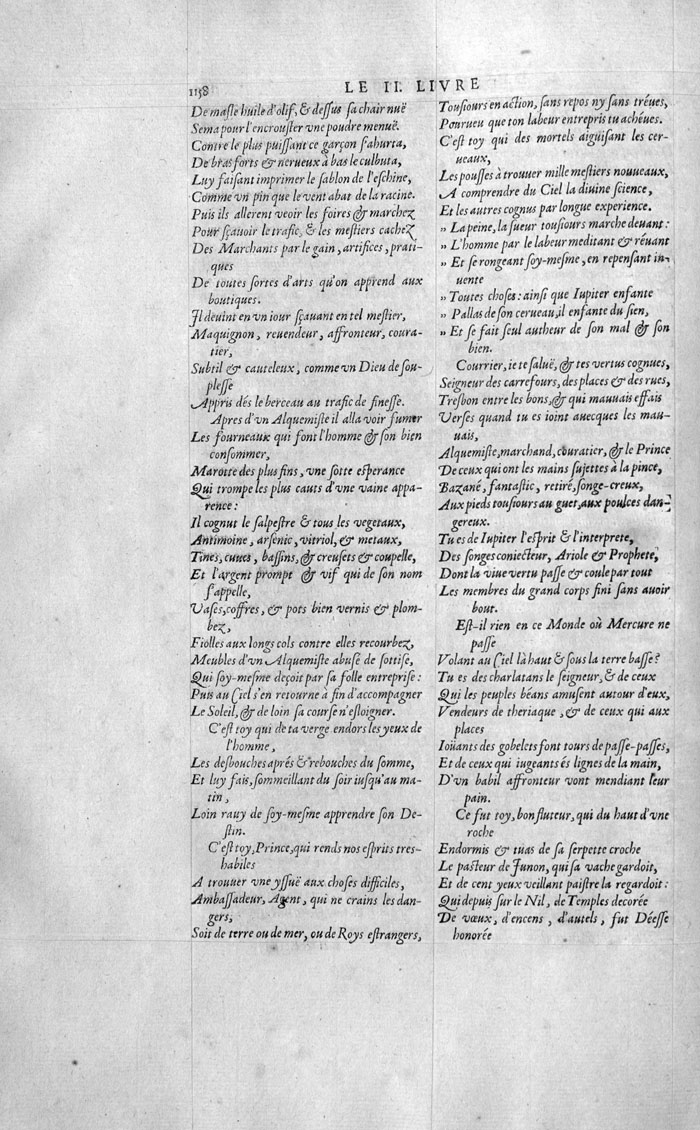 1158
LE II. LIVRE
De masle huile d'olif, & dessus sa chair nuë
Sema pour l'encrouster vne poudre menuë.
Contre le plus puissant ce garçon s'ahurta,
De bras forts & nerueux à bas le culbuta,
Luy faisant imprimer le sablon de l'eschine,
Comme vn pin que le vent abat de la racine.
Puis ils allerent veoir les foires & marchez
Pour sçauoir le trafic, & les mestiers cachez
Des Marchants par le gain, artifices, prati-
ques
De toutes sortes d'arts qu'on apprend aux
boutiques.
Il deuint en vn iour sçauant en tel mestier,
Maquignon, reuendeur, affronteur, coura-
tier,
Subtil & cauteleux, comme vn Dieu de sou-
plesse
Appris dés le berceau au trafic de finesse.
Apres d'vn Alquemiste il alla voir fumer
Les fourneaux qui font l'homme & son bien
consommer,
Marotte des plus fins, vne sotte esperance
Qui trompe les plus cauts d'vne vaine appa-
rence :
Il cognut le salpestre & tous les vegetaux,
Antimoine, arsenic, vitriol, & metaux,
Tines, cuues, bassins, & creusets & coupelle,
Et l'argent prompt & vif qui de son nom
s'appelle,
Vases, coffres, & pots bien vernis & plom-
bez,
Fiolles aux longs cols contre elles recourbez,
Meubles d'vn Alquemiste abusé de sottise,
Qui soy-mesme deçoit par sa folle entreprise :
Puis au Ciel s'en retourne à fin d'accompagner
Le Soleil, & de loin sa course n'esloigner.
C'est toy qui de ta verge endors les yeux de
l'homme,
Les desbouches aprés & rebouches du somme,
Et luy fais, sommeillant du soir iusqu'au ma-
tin,
Loin rauy de soy-mesme apprendre son De-
stin.
C'est toy, Prince, qui rends nos esprits tres-
habiles
A trouuer vne yssuë aux choses difficiles,
Ambassadeur, Agent, qui ne crains les dan-
gers,
Soit de terre ou de mer, ou de Roys estrangers,
Tousiours en action, sans repos ny sans tréues,
Pourueu que ton labeur entrepris tu achéues.
C'est toy qui des mortels aiguisant les cer-
ueaux,
Les pousses à trouuer mille mestiers nouueaux,
A comprendre du Ciel la diuine science,
Et les autres cognus par longue experience.
" La peine, la sueur tousiours marche deuant :
" L'homme par le labeur meditant & réuant
" Et se rongeant soy-mesme, en repensant in-
uente
" Toutes choses : ainsi que Iupiter enfante
" Pallas de son cerueau, il enfante du sien,
" Et se fait seul autheur de son mal & son
bien.
Courrier, ie te saluë, & tes vertus cognues,
Seigneur des carrefours, des places & des rues,
Tresbon entre les bons, & qui mauuais effais
Verses quand tu es ioint auecques les mau-
uais,
Alquemiste, marchand, couratier, & le Prince
De ceux qui ont les mains sujettes à la pince,
Bazané, fantastic, retiré, songe-creux,
Aux pieds tousiours au guet, aux poulces dan-
gereux.
Tu es de Iupiter l'esprit & l'interprete,
Des songes coniecteur, Ariole & Prophete,
Dont la viue vertu passe & coule par tout
Les membres du grand corps fini sans auoir
bout.
Est-il rien en ce Monde où Mercure ne
passe
Volant au Ciel là haut & sous la terre basse ?
Tu es des charlatans le seigneur, & de ceux
Qui les peuples béans amusent autour d'eux,
Vendeurs de theriaque, & de ceux qui aux
places
Ioüants des gobelets font tours de passe-passes,
Et de ceux qui iugeants és lignes de la main,
D'vn babil affronteur vont mendiant leur
pain.
Ce fut toy, bon fluteur, qui du haut d'vne
roche
Endormis & tuas de sa serpette croche
Le pasteur de Junon, qui sa vache gardoit,
Et de cent yeux veillant paistre la regardoit :
Qui depuis sur le Nil, de Temples decorée
De vœux, d'encens, d'autels, fut Déesse
honorée